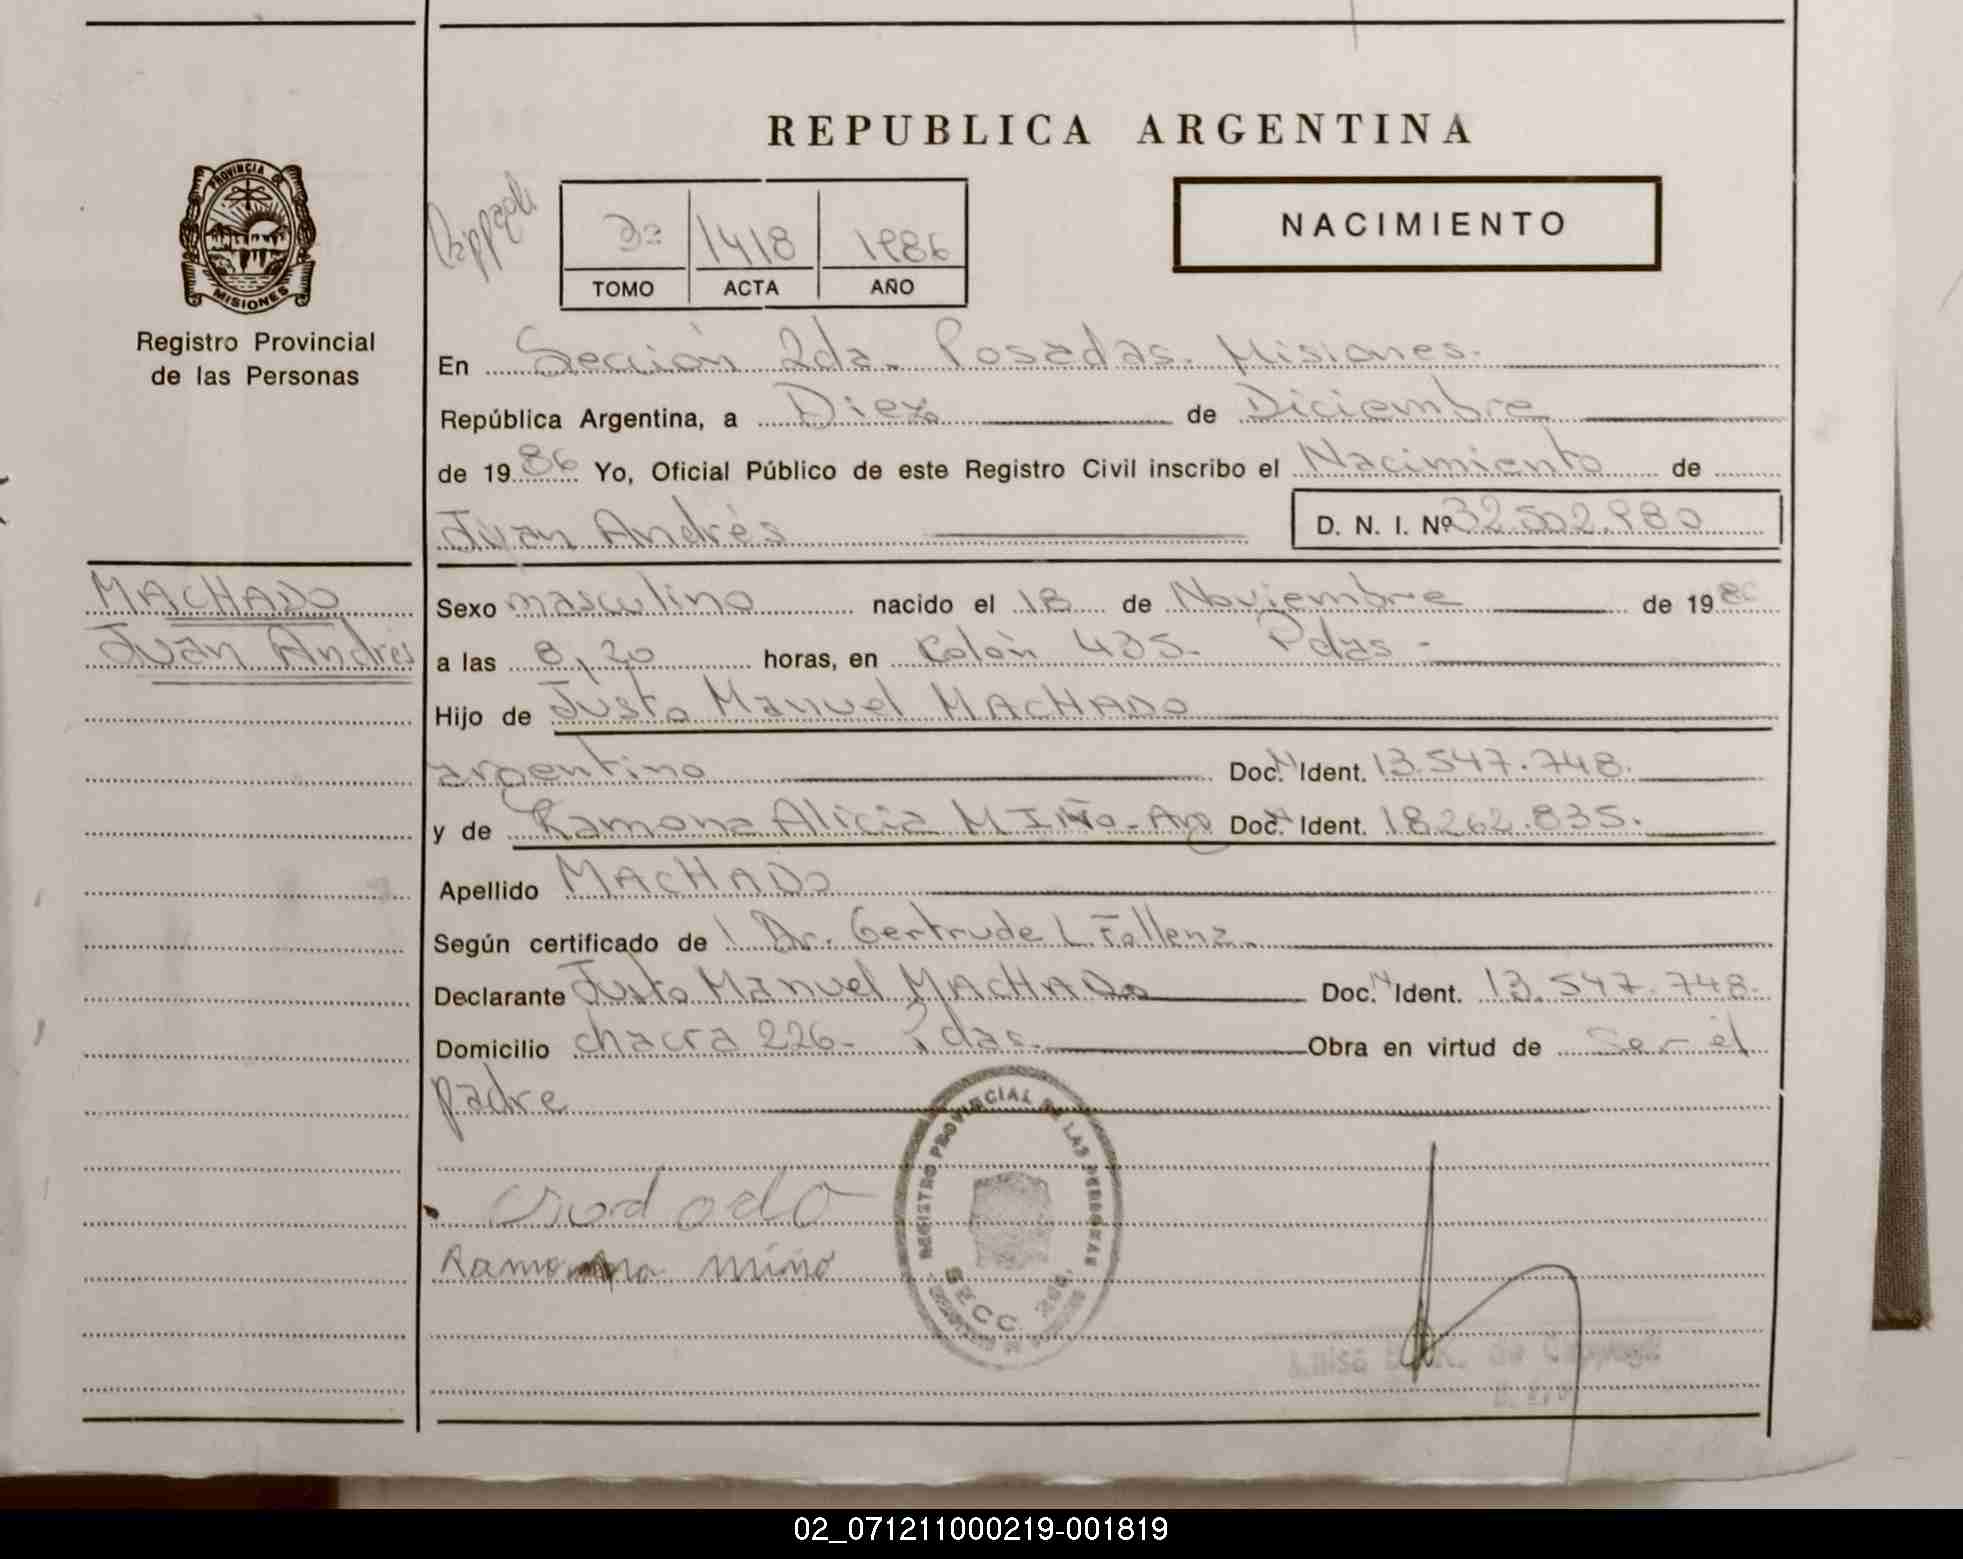 REPUBLICA ARGENTINA
PROVINCIA DE
MISIONES
Registro Provincial
de las Personas
3º 1418 1986
TOMO ACTA AÑO
NACIMIENTO
En Sección 2da. Posadas. Misiones.
República Argentina, a Diez de Diciembre
de 1986 Yo, Oficial Público de este Registro Civil inscribo el Nacimiento de
Juan Andrés D. N. I. Nº 32.502.980
MACHADO
Juan Andrés
Sexo masculino nacido el 18 de Noviembre de 1986
a las 8,20 horas, en Colón 435. Pdas -
Hijo de Justo Manuel MACHADO
argentino Doc. N Ident. 13.547.748.
y de Ramona Alicia MIÑO - Arg Doc. N Ident. 18.262.835.
Apellido MACHADO
Según certificado de Dr. Gertrude L. Follenz
Declarante Justo Manuel MACHADO Doc. N Ident. 13.547.748.
Domicilio chacra 226 - Pdas. Obra en virtud de ser el
padre
REGISTRO PROVINCIAL DE LAS PERSONAS
SECC. 2da.
Ramona miño
Luisa de
02_071211000219-001819